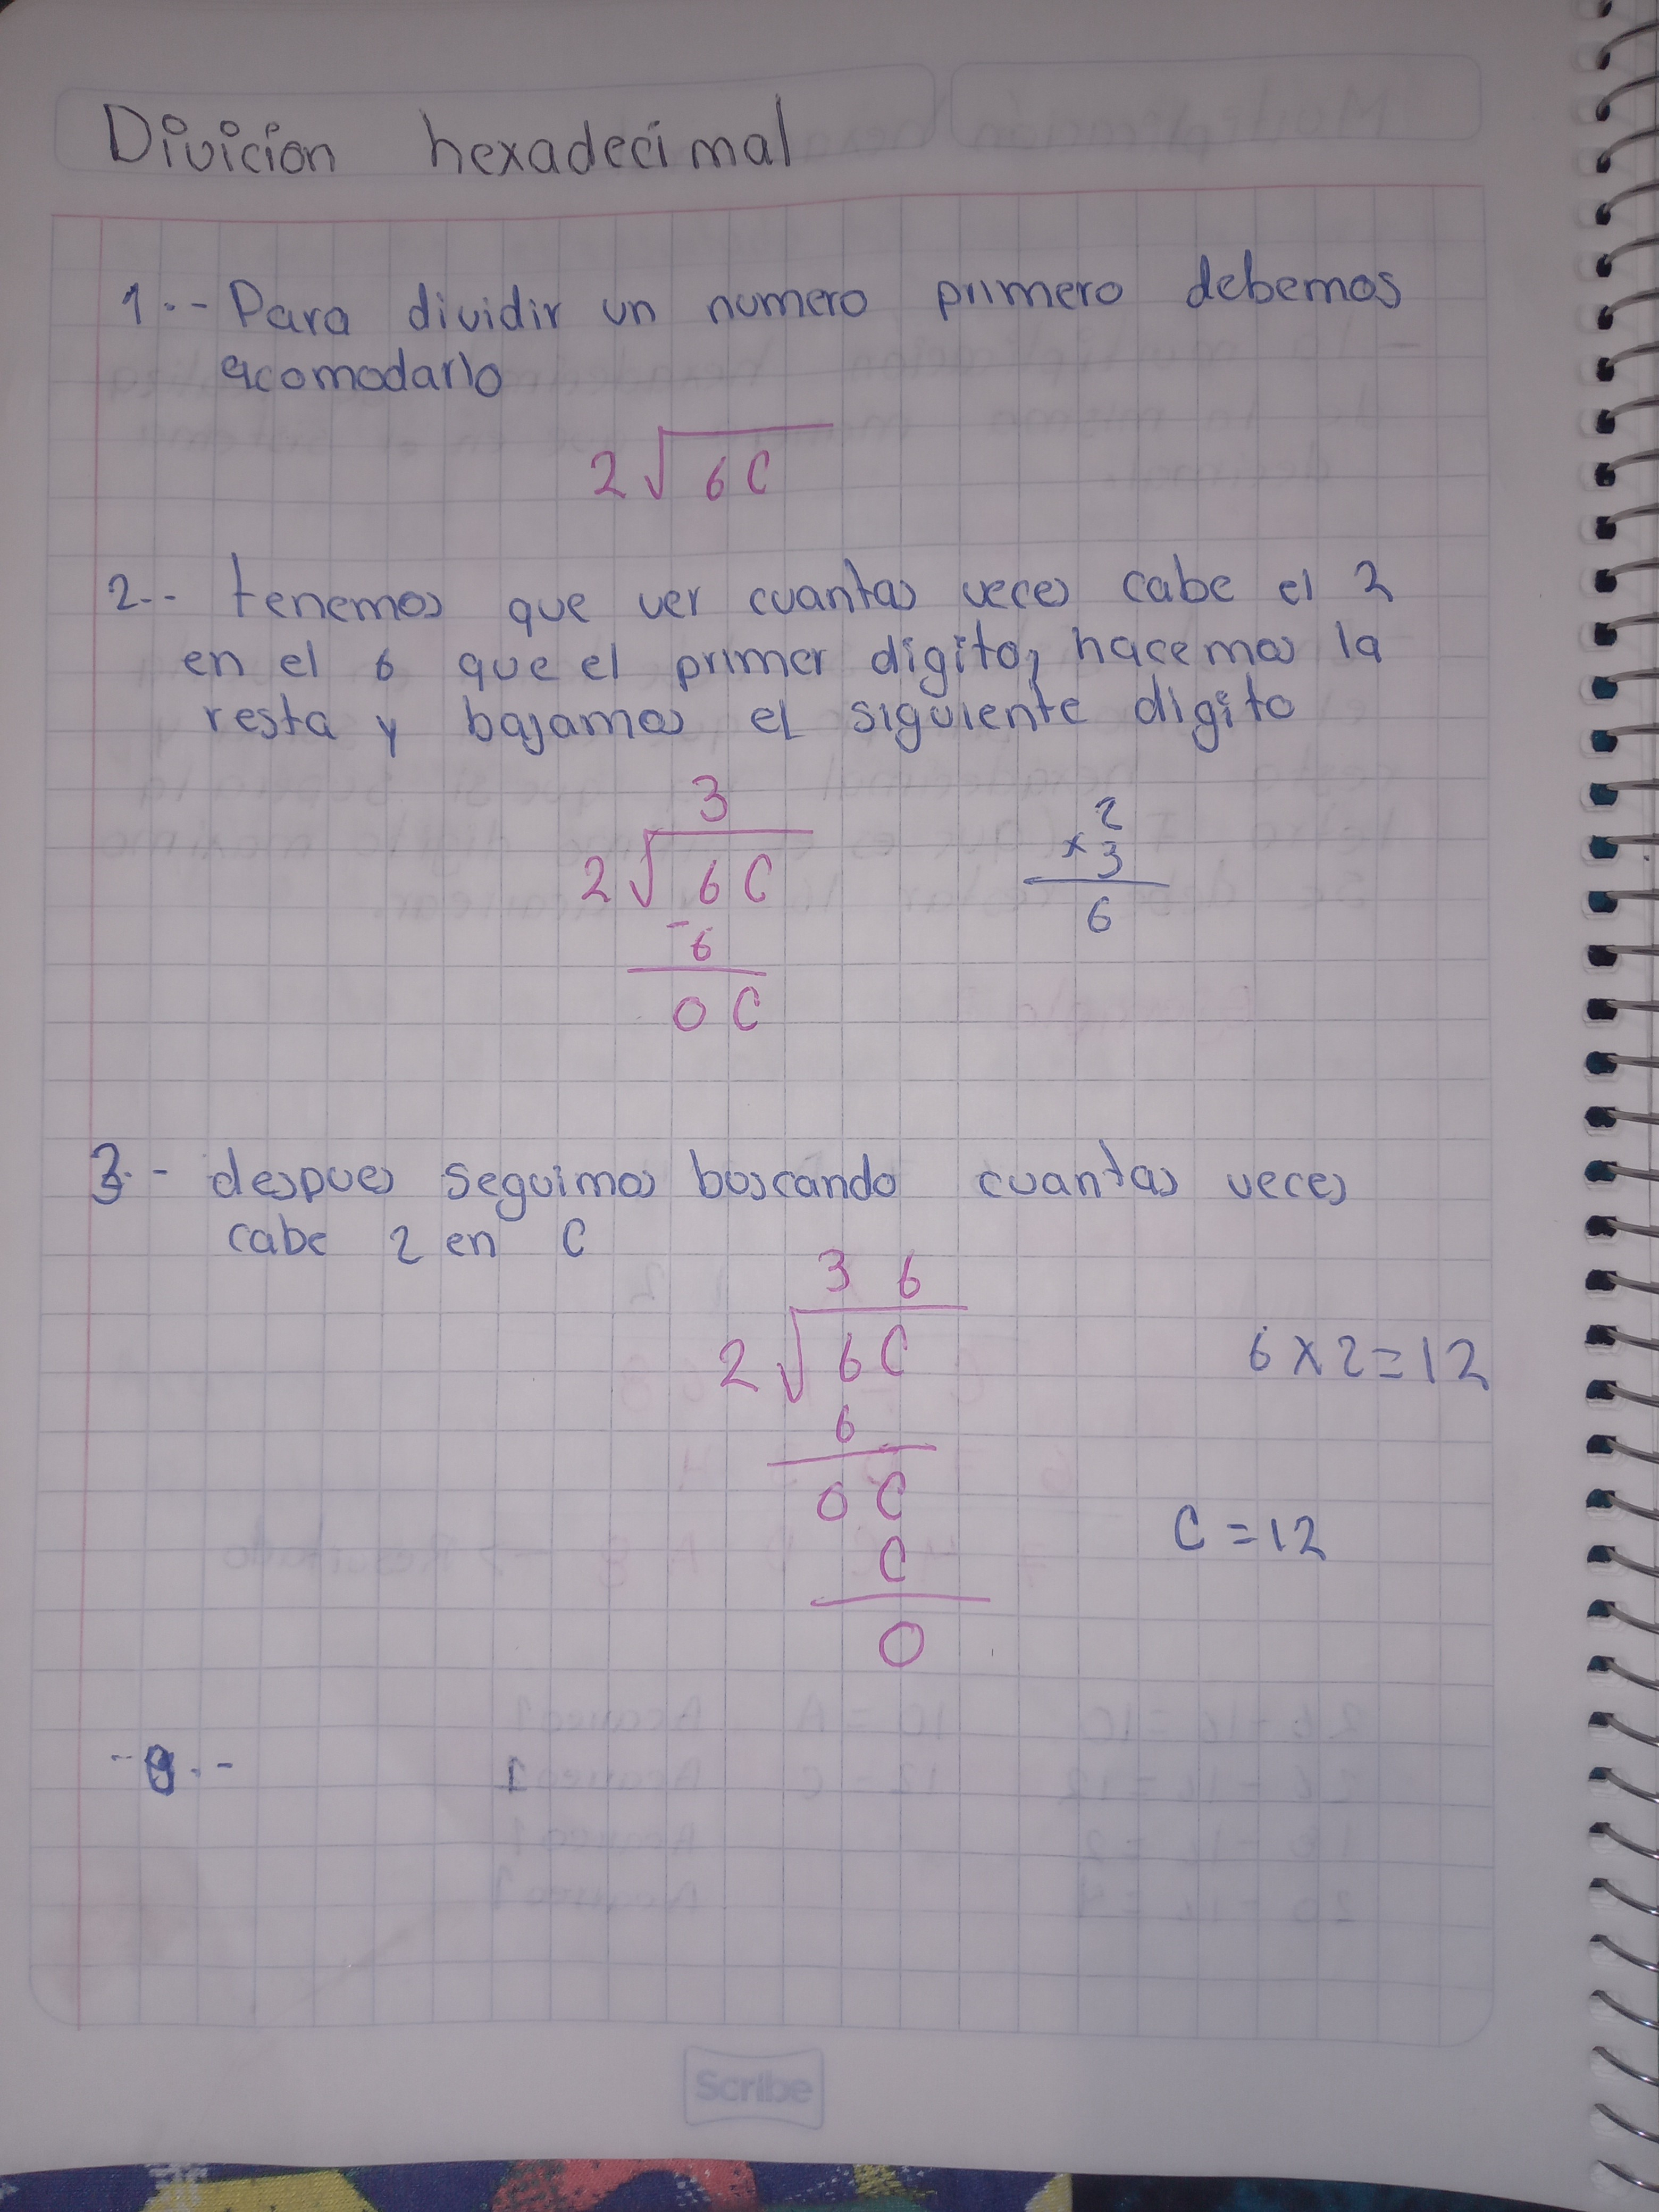 Divicion hexadecimal
1.- Para dividir un numero primero debemos
acomodarlo
2√6C
2.- tenemos que ver cuantas veces cabe el 2
en el 6 que el primer digito, hacemos la
resta y bajamos el siguiente digito
3
2√6C
-6
0C
2
x3
6
3.- despues seguimos buscando cuantas veces
cabe 2 en C
3 6
2√6C
6
0C
C
0
6x2=12
C=12
1
Scribe